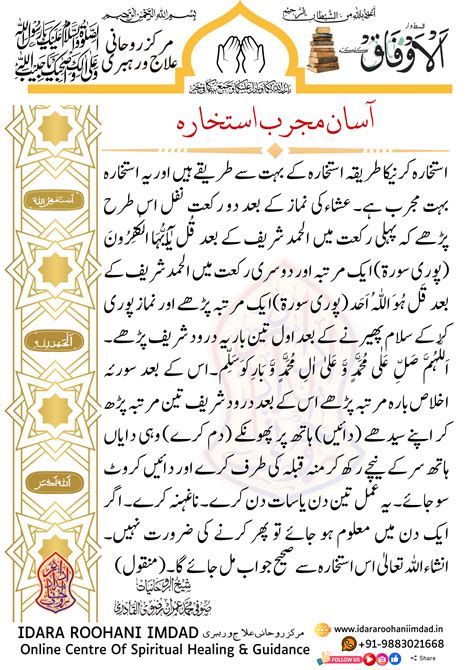 اعوذ باللہ من الشیطٰن الرجیم
بسم اللہ الرحمٰن الرحیم
قسط وار
الاوفاق
مرکز روحانی
علاج و رہبری
الصلوٰۃ والسلام علیک یا رسول اللہ
وعلیٰ آلک واصحابک یا حبیب اللہ
آسان مجرب استخارہ
استخارہ کرنیکا طریقہ استخارہ کے بہت سے طریقے ہیں اور یہ استخارہ
بہت مجرب ہے۔ عشاء کی نماز کے بعد دو رکعت نفل اس طرح
پڑھے کہ پہلی رکعت میں الحمد شریف کے بعد قُل یٰٓاَیُّہَا الْکٰفِرُوْنَ
(پوری سورۃ) ایک مرتبہ اور دوسری رکعت میں الحمد شریف کے
بعد قُل هُوَ اللّٰہُ اَحَد (پوری سورۃ) ایک مرتبہ پڑھے اور نماز پوری
کر کے سلام پھیرنے کے بعد اول تین بار یہ درود شریف پڑھے۔
اَللّٰھُمَّ صَلِّ عَلٰی مُحَمَّدٍ وَّ عَلٰی اٰلِ مُحَمَّدٍ وَّ بَارِکْ وَسَلِّمْ۔ اس کے بعد سورئہ
اخلاص بارہ مرتبہ پڑھے اس کے بعد درود شریف تین مرتبہ پڑھ
کر اپنے سیدھے (دائیں) ہاتھ پر پھونکے (دم کرے) وہی دایاں
ہاتھ سر کے نیچے رکھ کر منہ قبلہ کی طرف کرے اور دائیں کروٹ
سو جائے۔ یہ عمل تین دن یا سات دن کرے۔ ناغہ نہ کرے۔ اگر
ایک دن میں معلوم ہو جائے تو پھر کرنے کی ضرورت نہیں۔
انشاء اللہ تعالیٰ اس استخارہ سے صحیح جواب مل جائے گا۔ (منقول)
استغفر اللہ
الحمد للہ
اللہ اکبر
شیخ الروحانیات
IDARA ROOHANI IMDAD مرکز روحانی علاج و رہبری
Online Centre Of Spiritual Healing & Guidance
www.idararoohaniimdad.in
+91-9883021668
FOLLOW US
Share